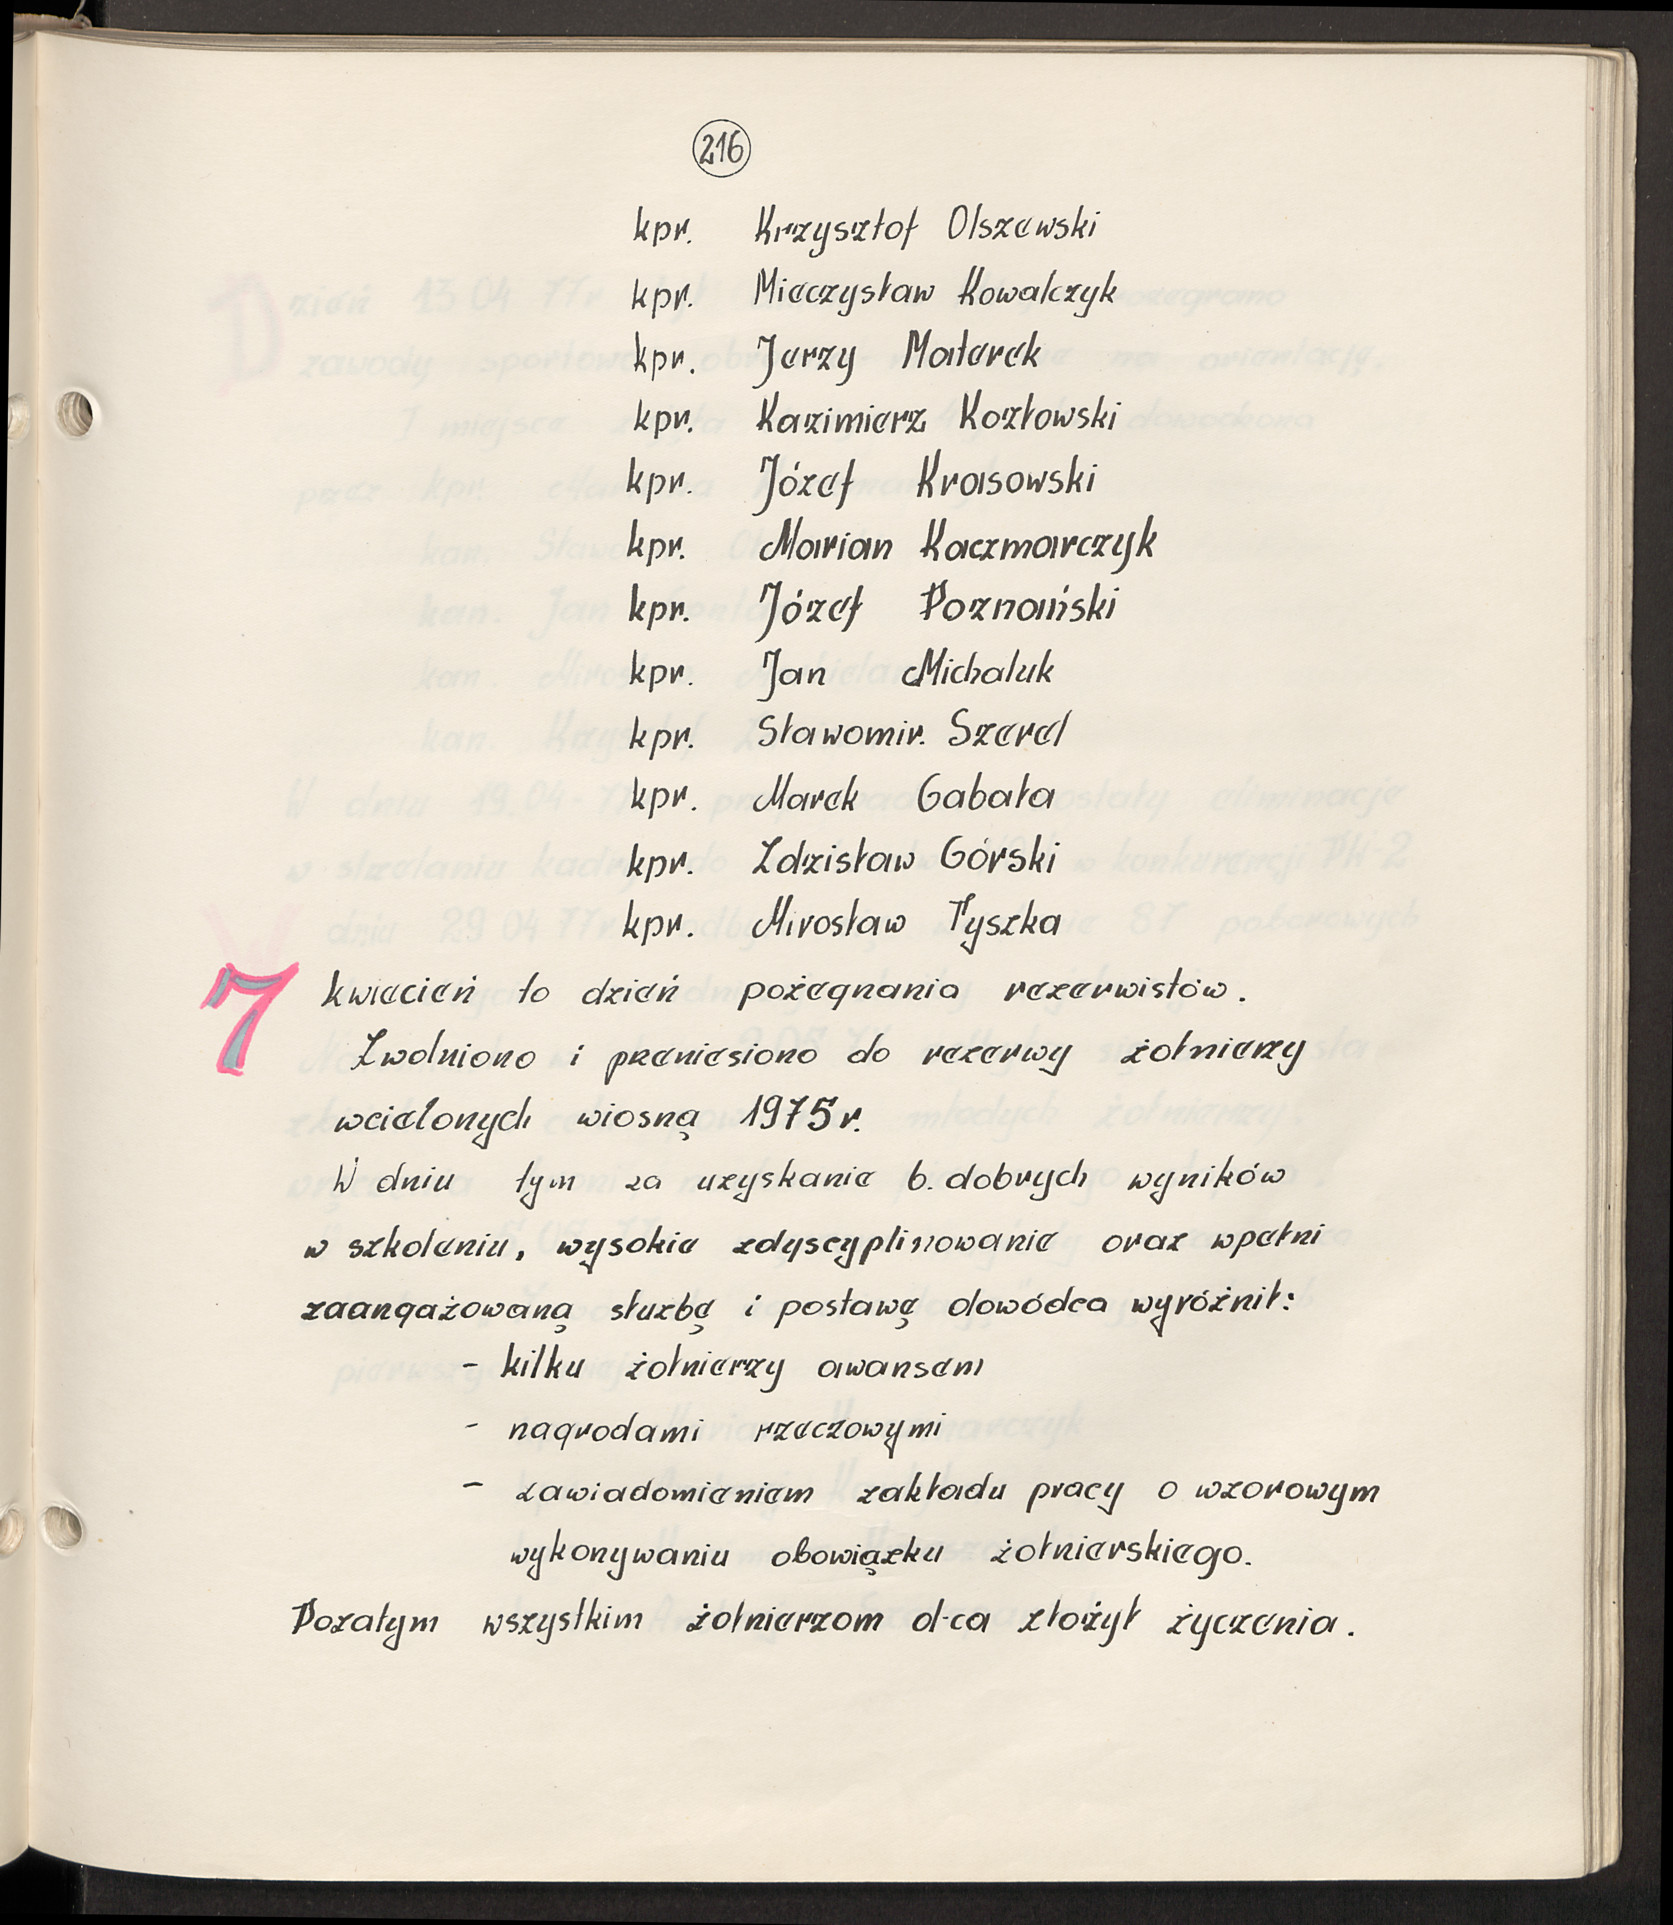 216
kpr. Krzysztof Olszewski
kpr. Mieczysław Kowalczyk
kpr. Jerzy Materek
kpr. Kazimierz Kozłowski
kpr. Józef Krasowski
kpr. Marian Kaczmarczyk
kpr. Józef Poznański
kpr. Jan Michaluk
kpr. Sławomir. Szerel
kpr. Marek Gabała
kpr. Zdzisław Górski
kpr. Mirosław Tyszka
7 kwiecień to dzień pożegnania rezerwistów.
Zwolniono i przeniesiono do rezerwy żołnierzy
wcielonych wiosną 1975r.
W dniu tym za uzyskanie b. dobrych wyników
w szkoleniu, wysokie zdyscyplinowanie oraz wpełni
zaangażowaną służbę i postawę dowódca wyróżnił:
- kilku żołnierzy awansem
- nagrodami rzeczowymi
- zawiadomieniem zakładu pracy o wzorowym
wykonywaniu obowiązku żołnierskiego.
Pozatym wszystkim żołnierzom d-ca złożył życzenia.